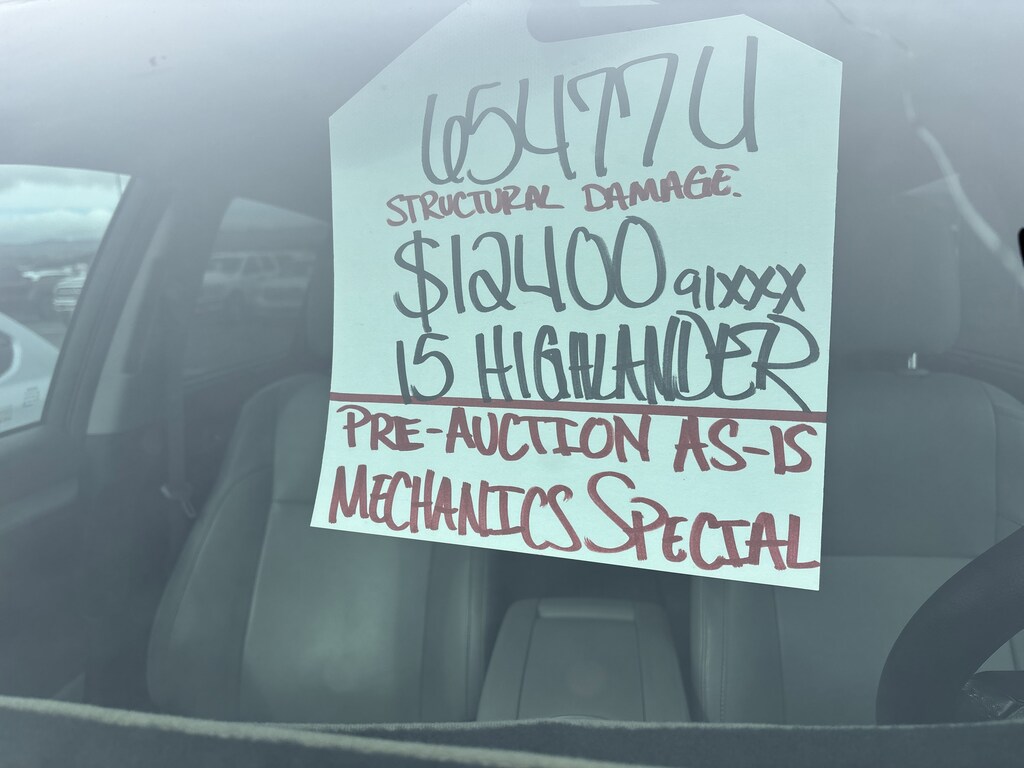 65477U
STRUCTURAL DAMAGE.
$12400 91xxx
15 HIGHLANDER
PRE-AUCTION AS-IS
MECHANICS SPECIAL